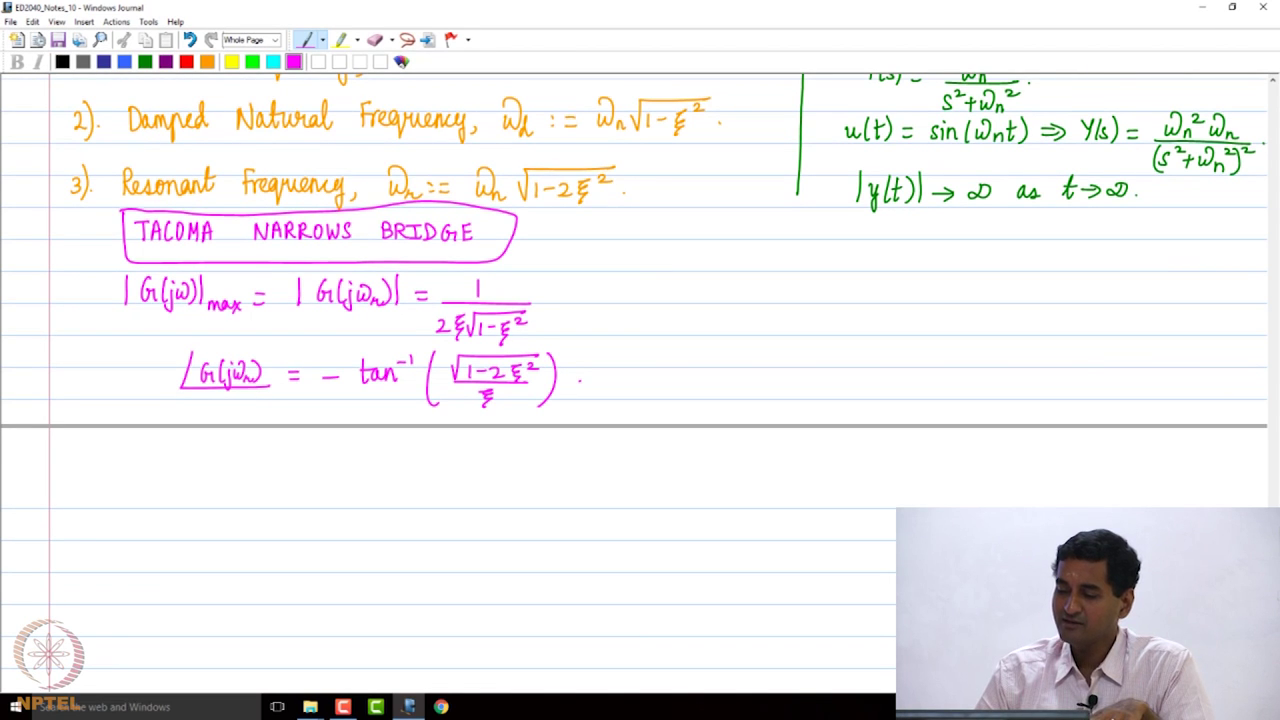 ED2040_Notes_10 - Windows Journal
File Edit View Insert Actions Tools Help
Whole Page
B I
2). Damped Natural Frequency, ω_d := ω_n √(1-ξ²).
3). Resonant Frequency, ω_r := ω_n √(1-2ξ²).
TACOMA NARROWS BRIDGE
|G(jω)|max = |G(jω_r)| = 1 / (2ξ√(1-ξ²))
∠G(jω_r) = - tan⁻¹ ( √(1-2ξ²) / ξ ).
s²+ω_n² .
u(t) = sin(ω_n t) ⇒ Y(s) = ω_n² ω_n / (s²+ω_n²)² .
|y(t)| → ∞ as t→∞.
NPTEL
Search the web and Windows